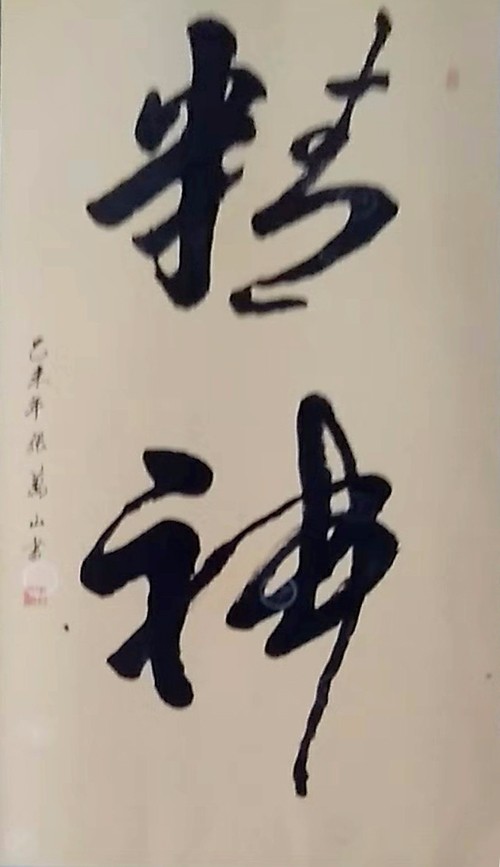 精神
己未年張萬山書